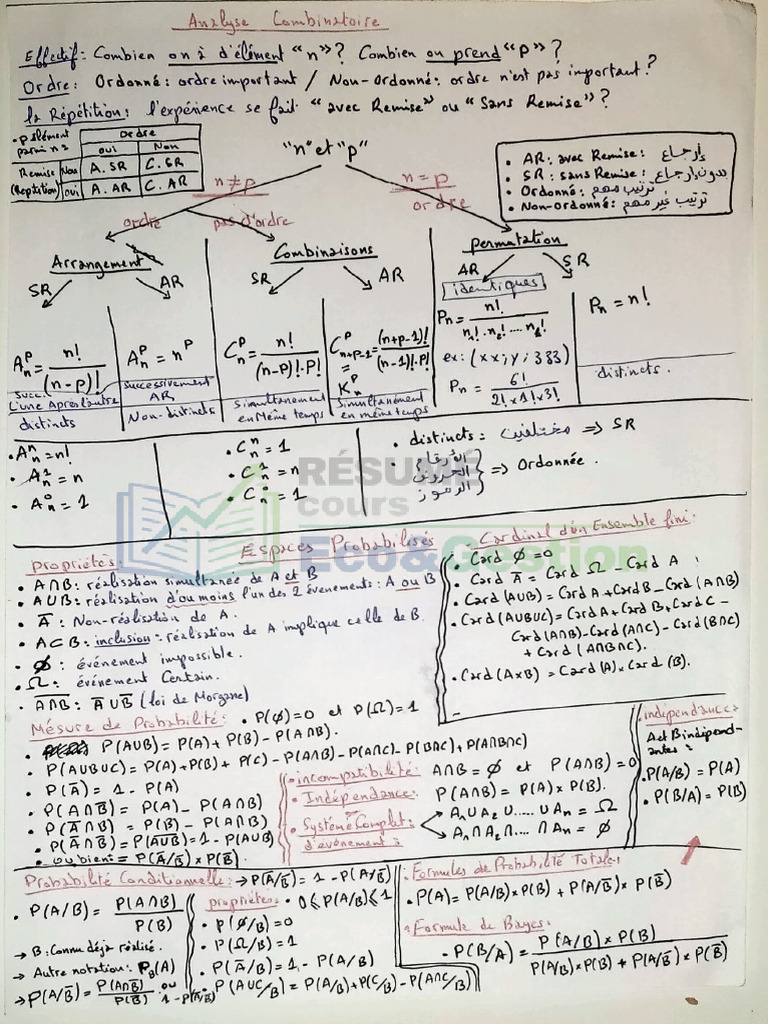 Analyse Combinatoire
Effectif: Combien on à d'élément "n"? Combien on prend "p"?
Ordre: Ordonné: ordre important / Non-Ordonné: ordre n'est pas important?
la Répétition: l'expérience se fait "avec Remise" ou "Sans Remise"?
• P élément parmi n: Ordre
oui Non
Remise (Repetition) Non A.SR C.SR
oui A.AR C.AR
"n" et "p"
n≠p
n=p
ordre
• AR: avec Remise: إرجاع
• SR: sans Remise: بدون إرجاع
• Ordonné: ترتيب مهم
• Non-ordonné: ترتيب غير مهم
ordre pas d'ordre
Arrangement Combinaisons permutation
SR AR SR AR AR SR
identiques
A_n^p = n!/(n-p)!
succ. L'une Après l'autre
distincts
A_n^p = n^p
successivement AR
Non-distincts
C_n^p = n!/(n-p)!·p!
Simultanément en Même temps
C_{n+p-1}^p = (n+p-1)!/(n-1)!·P!
= K_n^p
Simultanément en même temps
P_n = n!/n₁!·n₂!....n_k!
ex: (xx; y; 333)
P_n = 6!/2!×1!×3!
P_n = n!
distincts.
• A_n^n = n!
• A_n^1 = n
• A_n^0 = 1
• C_n^n = 1
• C_n^1 = n
• C_n^0 = 1
• distincts = مختلفين => SR
• الأرقام الحروف الرموز => Ordonnée.
RÉSUMÉ
cours
Eco&Gestion
Espaces Probabilisés
propriétés:
• A∩B: réalisation simultanée de A et B
• A∪B: réalisation d'au moins l'un des 2 évenements: A ou B
• A̅: Non-réalisation de A.
• A⊂B: inclusion: réalisation de A implique celle de B.
• ∅: événement impossible.
• Ω: événement Certain.
• A̅∩̅B̅: A̅∪B̅ (loi de Morgane)
Cardinal d'un Ensemble fini:
• Card ∅ = 0
• Card A̅ = Card Ω - Card A
• Card(A∪B) = Card A + Card B - Card (A∩B)
• Card(A∪B∪C) = Card A + Card B + Card C -
Card(A∩B) - Card(A∩C) - Card(B∩C)
+ Card (A∩B∩C).
• Card(A×B) = Card(A) × Card (B).
Mésure de Probabilité: • P(∅)=0 et P(Ω)=1
• P(A∪B) = P(A) + P(B) - P(A∩B).
• P(A∪B∪C) = P(A) + P(B) + P(C) - P(A∩B) - P(A∩C) - P(B∩C) + P(A∩B∩C)
• P(A̅) = 1 - P(A)
• P(A∩B̅) = P(A) - P(A∩B)
• P(A̅∩B) = P(B) - P(A∩B)
• P(A̅∩B̅) = P(A̅∪̅B̅) = 1 - P(A∪B)
• ou bien = P(A̅/B̅) × P(B̅).
• incompatibilité: A∩B = ∅ et P(A∩B) = 0
• Indépendance: P(A∩B) = P(A) × P(B).
• Système Complet d'événement: A₁∪A₂∪.....∪A_n = Ω
A₁∩A₂∩....∩A_n = ∅
indépendance:
A et B indépendantes:
• P(A/B) = P(A)
• P(B/A) = P(B)
Probabilité Conditionnelle: → P(A̅/B̅) = 1 - P(A/B̅)
• P(A/B) = P(A∩B)/P(B)
→ B: Connu déjà réalisé.
→ Autre notation: P_B(A)
→ P(A/B̅) = P(A∩B̅)/P(B̅) ou 1-P(A̅/B̅)
propriétés: • 0≤P(A/B)≤1
• P(∅/B) = 0
• P(Ω/B) = 1
• P(A̅/B) = 1 - P(A/B)
• P(A∪C/B) = P(A/B) + P(C/B) - P(A∩C/B)
Formules de Probabilité Totale:
• P(A) = P(A/B) × P(B) + P(A/B̅) × P(B̅)
• Formule de Bayes:
• P(B/A) = P(A/B) × P(B) / P(A/B) × P(B) + P(A/B̅) × P(B̅)